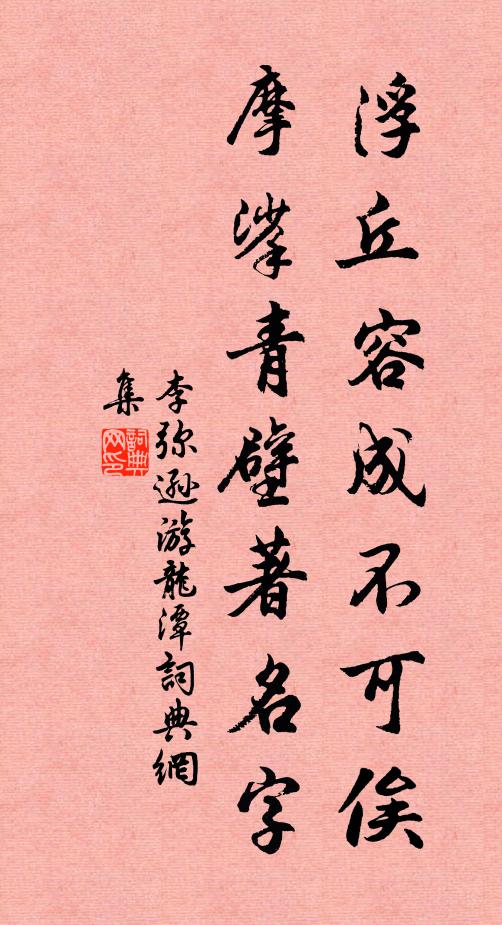 浮丘容成不可俟
摩挲青壁著名字
李弥遜游龍潭詞典網
集
詞典
网印